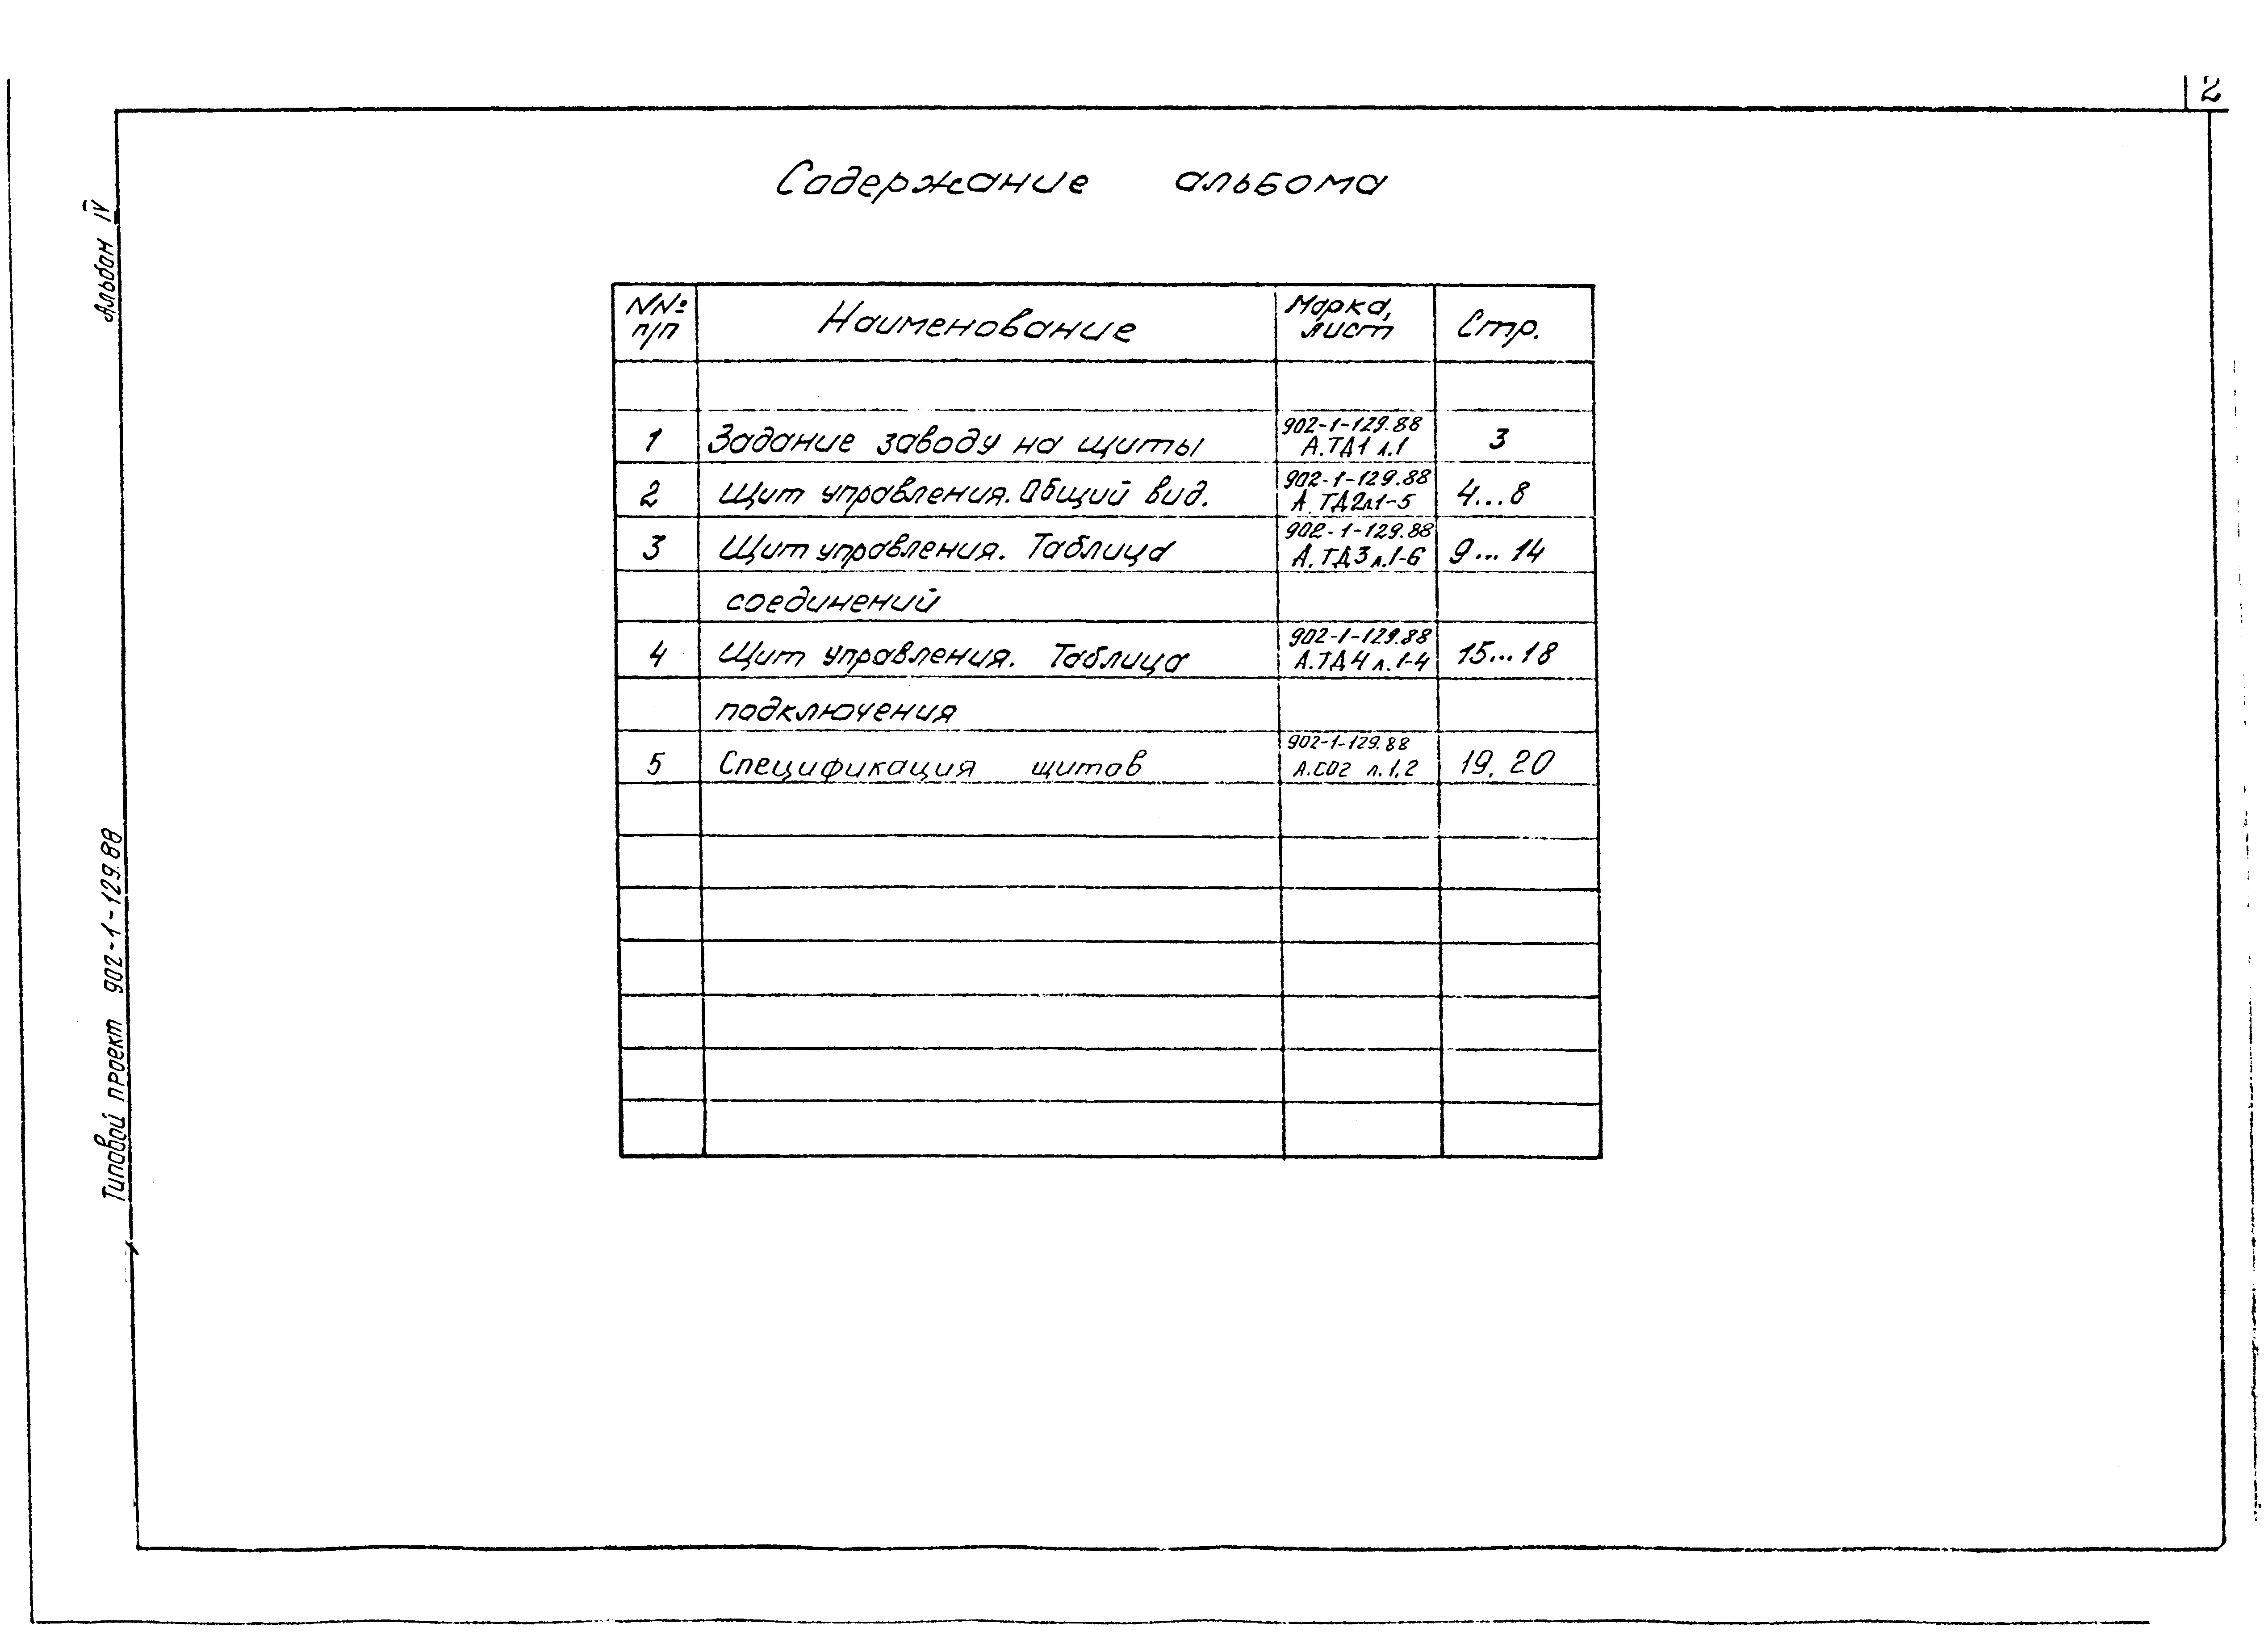 2
Содержание альбома
Альбом IV
Типовой проект 902-1-129.88
NNº п/п Наименование Марка, лист Стр.
1 Задание заводу на щиты 902-1-129.88 А.ТД1 л.1 3
2 Щит управления. Общий вид. 902-1-129.88 А.ТД2л1-5 4...8
3 Щит управления. Таблица 902-1-129.88 А.ТД3 л.1-6 9...14
соединений
4 Щит управления. Таблица 902-1-129.88 А.ТД4 л.1-4 15...18
подключения
5 Спецификация щитов 902-1-129.88 А.СО2 л.1,2 19, 20